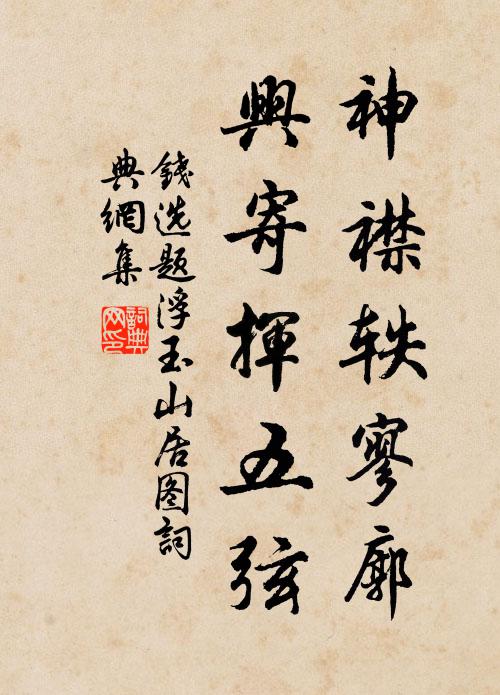 神襟轶寥廓
興寄揮五弦
錢选题浮玉山居图詞
典網集
詞典网印